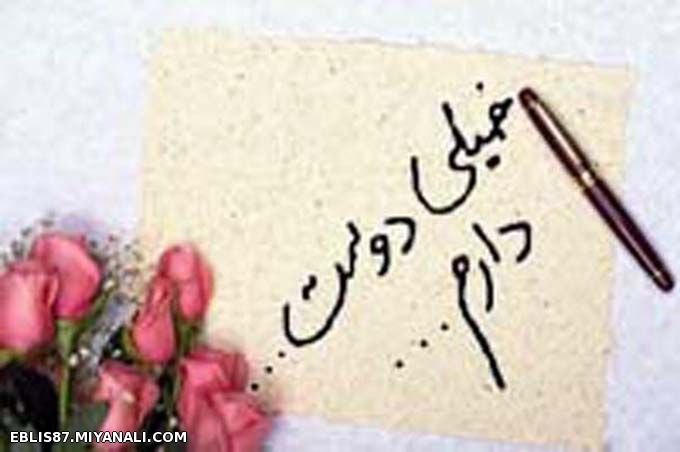 خیلی
دوست...
دارم...
EBLIS87.MIYANALI.COM